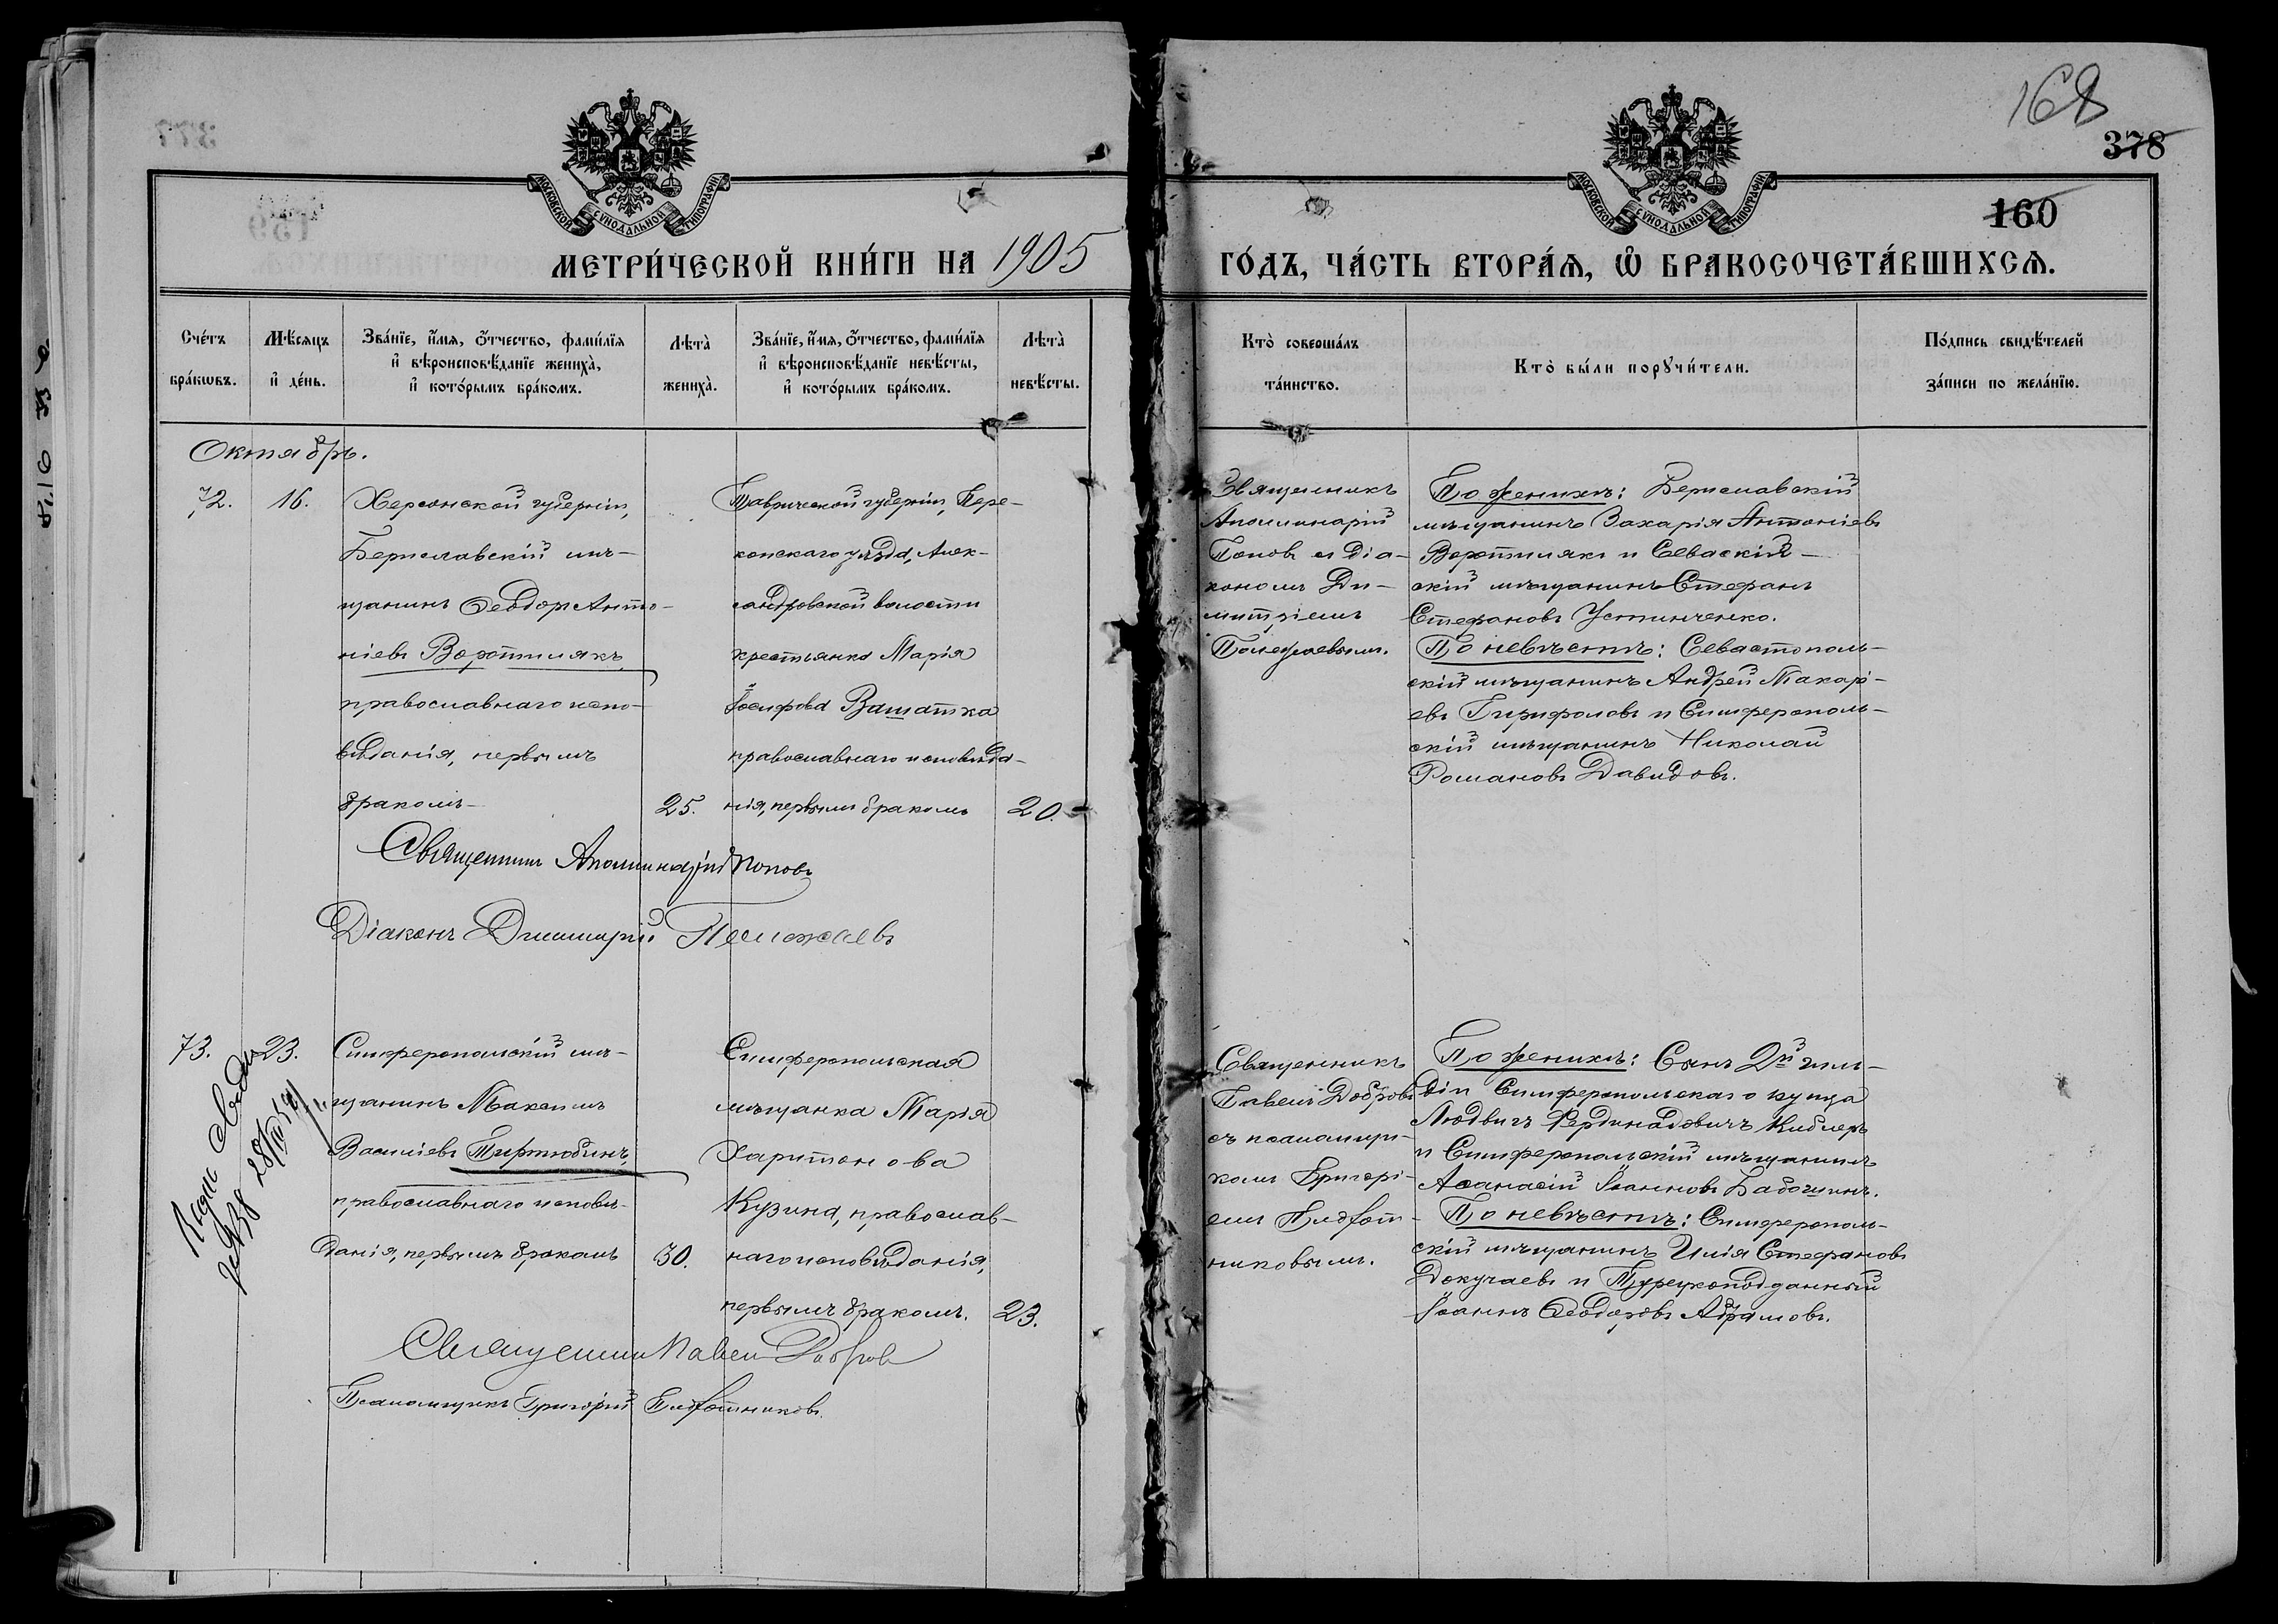 168
378
160
МОСКОВСКОЙ СѴНОДАЛЬНОЙ ТИПОГРАФІИ
МОСКОВСКОЙ СѴНОДАЛЬНОЙ ТИПОГРАФІИ
МЕТРИ́ЧЕСКОЙ КНИ́ГИ НА 1905
ГО́ДЪ, ЧА́СТЬ ВТОРА́Ѧ, Ѡ҆ БРАКОСОЧЕТА́ВШИХСѦ.
Сче́тъ бра́кѡвъ.
Мѣ́сяцъ и҆ де́нь.
Зва́нїе, и҆́мя, ѻ҆́тчество, фами́лїя
и҆ вѣроисповѣ́данїе жениха̀,
и҆ кото́рымъ бра́комъ.
Лѣта̀ жениха̀.
Зва́нїе, и҆́мя, ѻ҆́тчество, фами́лїя
и҆ вѣроисповѣ́данїе невѣ́сты,
и҆ кото́рымъ бра́комъ.
Лѣта̀ невѣ́сты.
Кто̀ соверша́лъ
та́инство.
Кто̀ бы́ли порꙋчи́тели.
По́дпись свидѣ́телей
за́писи по жела́нїю.
Октябрь.
72.
16.
Херсонской губерніи,
Бериславскій мѣ-
щанинъ Ѳеодоръ Анто-
ніевъ Воротилякъ
православнаго испо-
вѣданія, первымъ
бракомъ
25.
Таврической губерніи, Пере-
копскаго уѣзда, Алек-
сандровской волости
крестьянка Марія
Іосифова Вашатка
православнаго исповѣда-
нія, первымъ бракомъ
20.
Священникъ
Аполлинарій
Поповъ съ діа-
кономъ Ди-
митріемъ
По женихѣ: Бериславскій
мѣщанинъ Захарія Антоніевъ
Воротилякъ и
скій мѣщанинъ Стефанъ
Стефановъ Устинченко.
По невѣстѣ: Севастополь-
скій мѣщанинъ Андрей Макарі-
евъ и Симферополь-
скій мѣщанинъ Николай
Романовъ Давидовъ.
Священникъ Аполлинарій Поповъ
Діаконъ Димитрій
73.
23.
Симферопольскій мѣ-
щанинъ Максимъ
Васильевъ
православнаго исповѣ-
данія, первымъ бракомъ
30.
Симферопольская
мѣщанка Марія
Харитонова
Кузина, православ-
наго исповѣданія,
первымъ бракомъ.
23.
Священникъ
Павелъ Добровъ
съ псаломщи-
комъ Григорі-
емъ Плодот-
никовымъ.
По женихѣ: Сынъ 2й гиль-
діи Симферопольскаго купца
Людвигъ Фердинадовичъ Киблеръ
и Симферопольскій мѣщанинъ
Аѳанасій Іоанновъ Бабошинъ.
По невѣстѣ: Симферополь-
скій мѣщанинъ Илія Стефановъ
Докучаевъ и Турецкоподданный
Іоаннъ Ѳеодоровъ Абрамовъ.
Священникъ Павелъ Добровъ
Псаломщикъ Григорій Плодотниковъ.